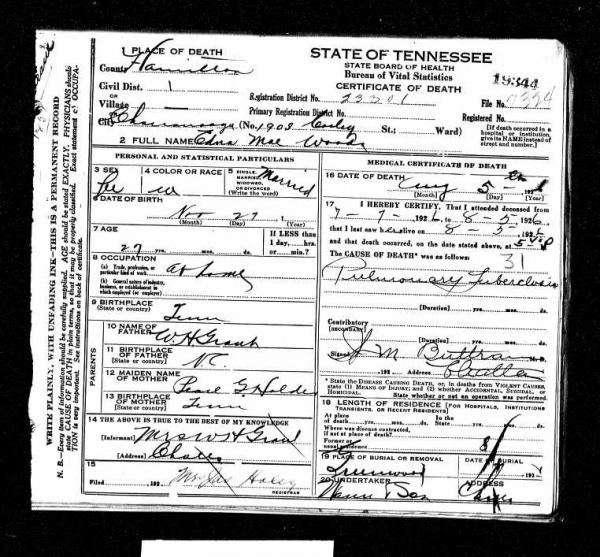 WRITE PLAINLY, WITH UNFADING INK—THIS IS A PERMANENT RECORD
N. B.—Every item of information should be carefully supplied. AGE should be stated EXACTLY. PHYSICIANS should
state CAUSE OF DEATH in plain terms, so that it may be properly classified. Exact statement of OCCUPA-
TION is very important. See instructions on back of certificate.
1 PLACE OF DEATH
County Hamilton
Civil Dist. 1
or
Village
or
City Chattanooga No. 1903
2 FULL NAME Edna Mae Woods
STATE OF TENNESSEE
STATE BOARD OF HEALTH
Bureau of Vital Statistics
CERTIFICATE OF DEATH
19344
Registration District No. 23301
File No.
Primary Registration District No.
Registered No.
St.; Ward)
[If death occurred in a
hospital or institution,
give its NAME instead of
street and number.]
PERSONAL AND STATISTICAL PARTICULARS
3 SEX
Fe
4 COLOR OR RACE
W
5 SINGLE,
MARRIED,
WIDOWED,
OR DIVORCED
(Write the word)
Married
6 DATE OF BIRTH
Nov 27 1
(Month) (Day) (Year)
7 AGE
27 yrs. mos. ds.
If LESS than
1 day, hrs.
or min.?
8 OCCUPATION
(a) Trade, profession, or
particular kind of work
at home
(b) General nature of industry,
business, or establishment in
which employed (or employer)
9 BIRTHPLACE
(State or country)
Tenn
PARENTS
10 NAME OF
FATHER
W H Grant
11 BIRTHPLACE
OF FATHER
(State or country)
N.C.
12 MAIDEN NAME
OF MOTHER
13 BIRTHPLACE
OF MOTHER
(State or country)
Tenn
14 THE ABOVE IS TRUE TO THE BEST OF MY KNOWLEDGE
(Informant) Mrs W H Grant
(Address) Chatta
15
Filed 192
REGISTRAR
MEDICAL CERTIFICATE OF DEATH
16 DATE OF DEATH
Aug 5th 192
(Month) (Day) (Year)
17 I HEREBY CERTIFY, That I attended deceased from
7-7-1926, to 8-5-1926
that I last saw her alive on 8-5-1926
and that death occurred, on the date stated above, at
The CAUSE OF DEATH* was as follows:
31
Pulmonary Tuberculosis
(Duration) yrs. mos. ds.
Contributory
(SECONDARY)
(Duration) yrs. mos. ds.
Signed J M Buttram M.D.
192 (Address) Chatta
* State the DISEASE CAUSING DEATH, or, in deaths from VIOLENT CAUSES,
state (1) MEANS OF INJURY; and (2) whether ACCIDENTAL, SUICIDAL, or
HOMICIDAL. State whether or not an operation was performed.
18 LENGTH OF RESIDENCE (FOR HOSPITALS, INSTITUTIONS
TRANSIENTS, OR RECENT RESIDENTS)
At place
of death yrs. mos. ds.
In the
State yrs. mos. ds.
Where was disease contracted,
if not at place of death?
Former or
usual residence
19 PLACE OF BURIAL OR REMOVAL
Greenwood
DATE OF BURIAL
192
20 UNDERTAKER